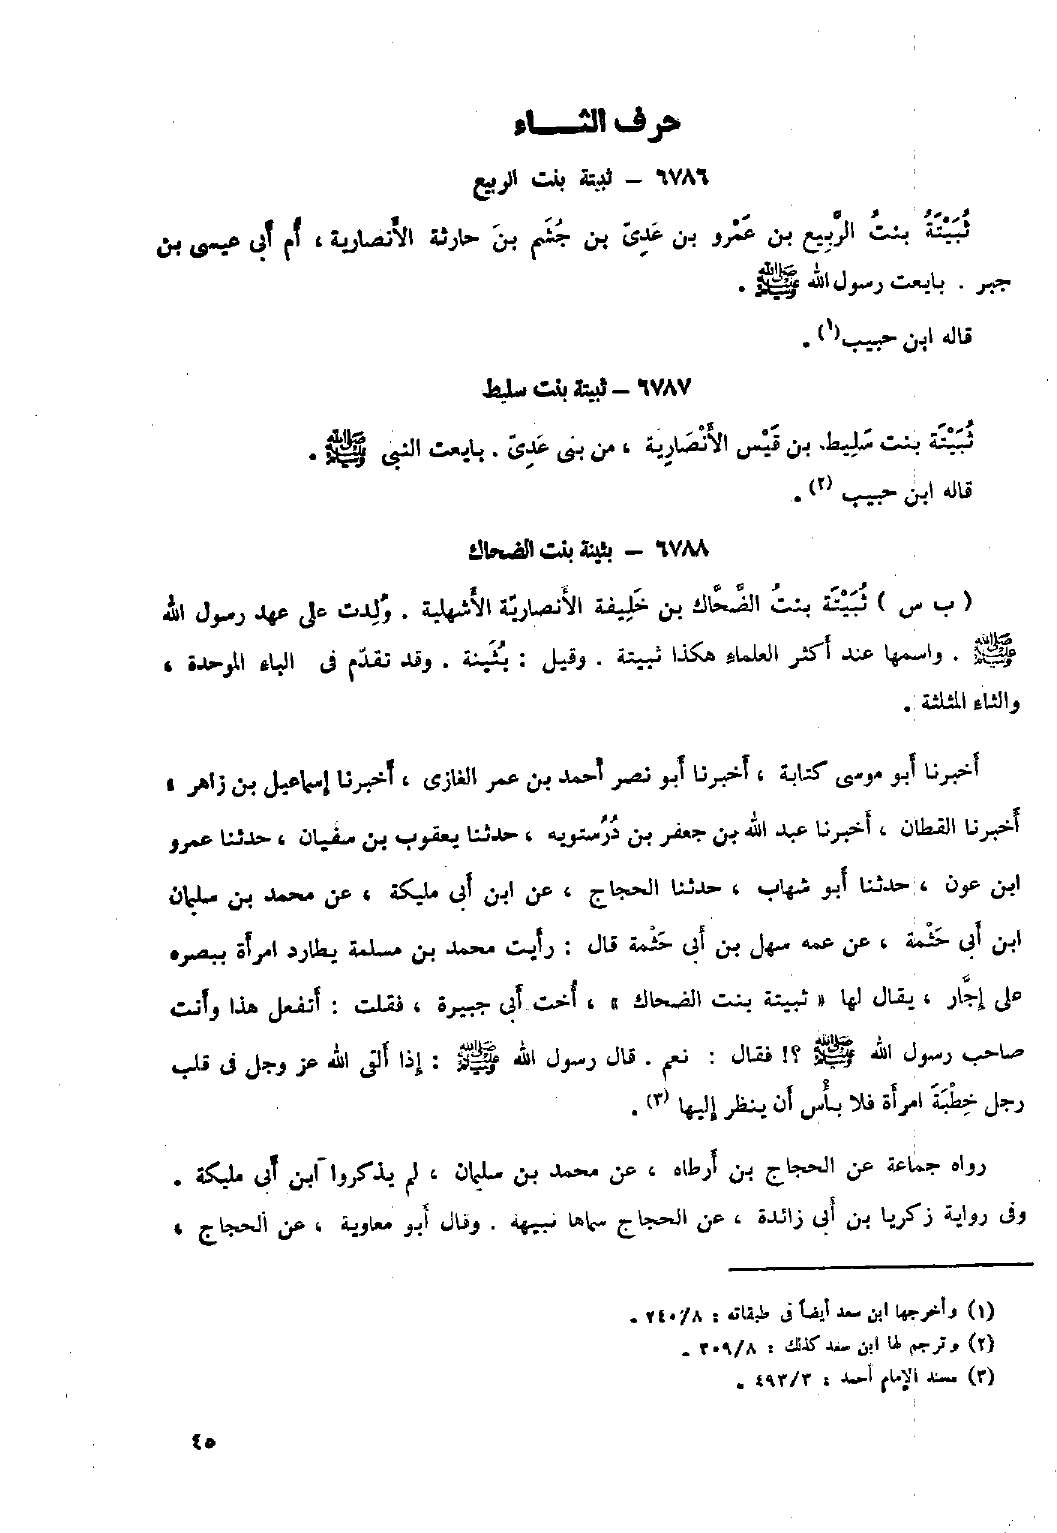 حرف الثــــاء
٦٧٨٦ – ثبيتة بنت الربيع
ثُبَيْتَةُ بنتُ الرَّبِيع بن عَمْرو بن عَدِىّ بن جُشَم بنَ حارثة الأنصارية ، أم أبى عيسى بن
جبر . بايعت رسول الله ﷺ .
قاله ابن حبيب(١) .
٦٧٨٧ – ثبيتة بنت سليط
ثُبَيْتَة بنت سَلِيط. بن قَيْس الأَنْصَارِية ، من بنى عَدِىّ . بايعت النبى ﷺ .
قاله ابن حبيب (٢) .
٦٧٨٨ – بثينة بنت الضحاك
( ب س ) ثُبَيْتَة بنتُ الضَّحَّاك بن خَلِيفة الأنصاريّة الأشهلية . وُلِدت على عهد رسول الله
ﷺ . واسمها عند أكثر العلماء هكذا ثبيتة . وقيل : بُثَينة . وقد تقدّم فى الباء الموحدة ،
والثاء المثلثة .
أخبرنا أبو موسى كتابة ، أخبرنا أبو نصر أحمد بن عمر الغازى ، أخبرنا إسماعيل بن زاهر ،
أخبرنا القطان ، أخبرنا عبد الله بن جعفر بن دُرُستويه ، حدثنا يعقوب بن سفيان ، حدثنا عمرو
ابن عون ، حدثنا أبو شهاب ، حدثنا الحجاج ، عن ابن أبى مليكة ، عن محمد بن سليمان
ابن أبى حَثْمة ، عن عمه سهل بن أبى حَثْمة قال : رأيت محمد بن مسلمة يطارد امرأة ببصره
على إجَّار ، يقال لها « ثبيتة بنت الضحاك » ، أُخت أبى جبيرة ، فقلت : أتفعل هذا وأنت
صاحب رسول الله ﷺ ؟! فقال : نعم . قال رسول الله ﷺ : إذا ألقى الله عز وجل فى قلب
رجل خِطْبَةَ امرأة فلا بأس أن ينظر إليها (٣) .
رواه جماعة عن الحجاج بن أرطاه ، عن محمد بن سليمان ، لم يذكروا ابن أبى مليكة .
وفى رواية زكريا بن أبى زائدة ، عن الحجاج سماها نبيهة . وقال أبو معاوية ، عن الحجاج ،
(١) وأخرجها ابن سعد أيضاً فى طبقاته : ٢٤٠/٨ .
(٢) وترجم لها ابن سعد كذلك : ٣٠٩/٨ .
(٣) مسند الإمام أحمد : ٤٩٣/٣ .
٤٥